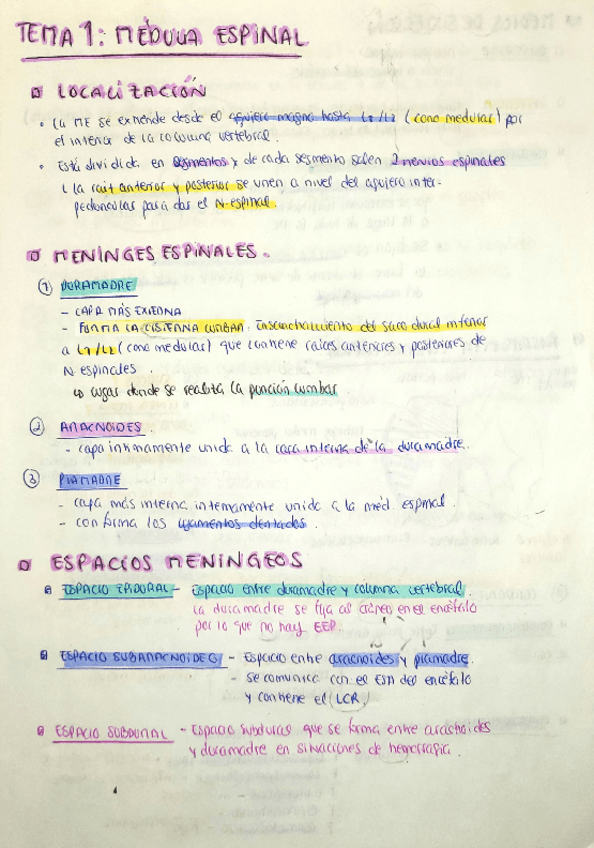 TEMA 1: MÉDULA ESPINAL
LOCALIZACIÓN
• La ME se extiende desde el agujero magno hasta L1/L2 (cono medular) por
el interior de la columna vertebral.
• Está dividida en segmentos y de cada segmento salen 2 nervios espinales
La raíz anterior y posterior se unen a nivel del agujero inter-
pedoncular para dar el N-espinal.
MENINGES ESPINALES.
1 DURAMADRE
- CAPA MÁS EXTERNA
- FORMA LA CISTERNA LUMBAR: Ensanchamiento del saco dural inferior
a L1/L2 (cono medular) que contiene raíces anteriores y posteriores de
N espinales.
↳ Lugar donde se realiza la punción lumbar.
2 ARACNOIDES.
- capa íntimamente unida a la cara interna de la duramadre.
3 PIAMADRE
- capa más interna, internamente unida a la méd. espinal.
- conforma los ligamentos dentados.
ESPACIOS MENÍNGEOS
ESPACIO EPIDURAL - Espacio entre duramadre y columna vertebral.
La duramadre se fija al cráneo en el encéfalo
por lo que no hay EEP.
ESPACIO SUBARACNOIDEO - Espacio entre aracnoides y piamadre.
- se comunica con el ESA del encéfalo
y contiene el LCR
ESPACIO SUBDURAL - Espacio que se forma entre aracnoides
y duramadre en situaciones de hemorragia.